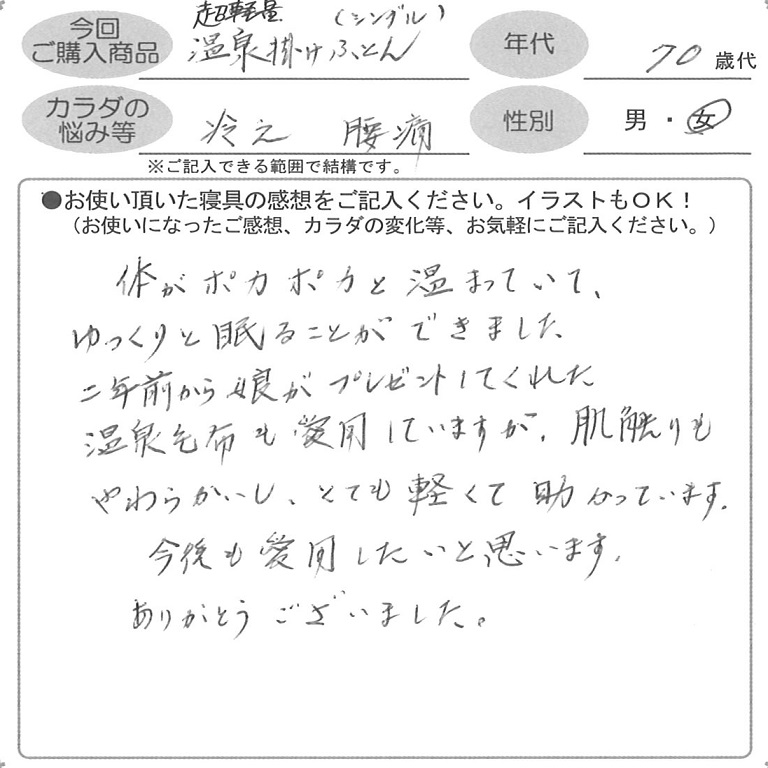 今回
ご購入商品
超軽量 (シングル)
温泉掛けふとん
年代
70歳代
カラダの
悩み等
冷え 腰痛
性別
男・女
※ご記入できる範囲で結構です。
●お使い頂いた寝具の感想をご記入ください。イラストもOK！
(お使いになったご感想、カラダの変化等、お気軽にご記入ください。)
体がポカポカと温まっていて、
ゆっくりと眠ることができました
二年前から娘がプレゼントしてくれた
温泉毛布も愛用していますが、肌触りも
やわらかいし、とても軽くて助かっています。
今後も愛用したいと思います。
ありがとうございました。